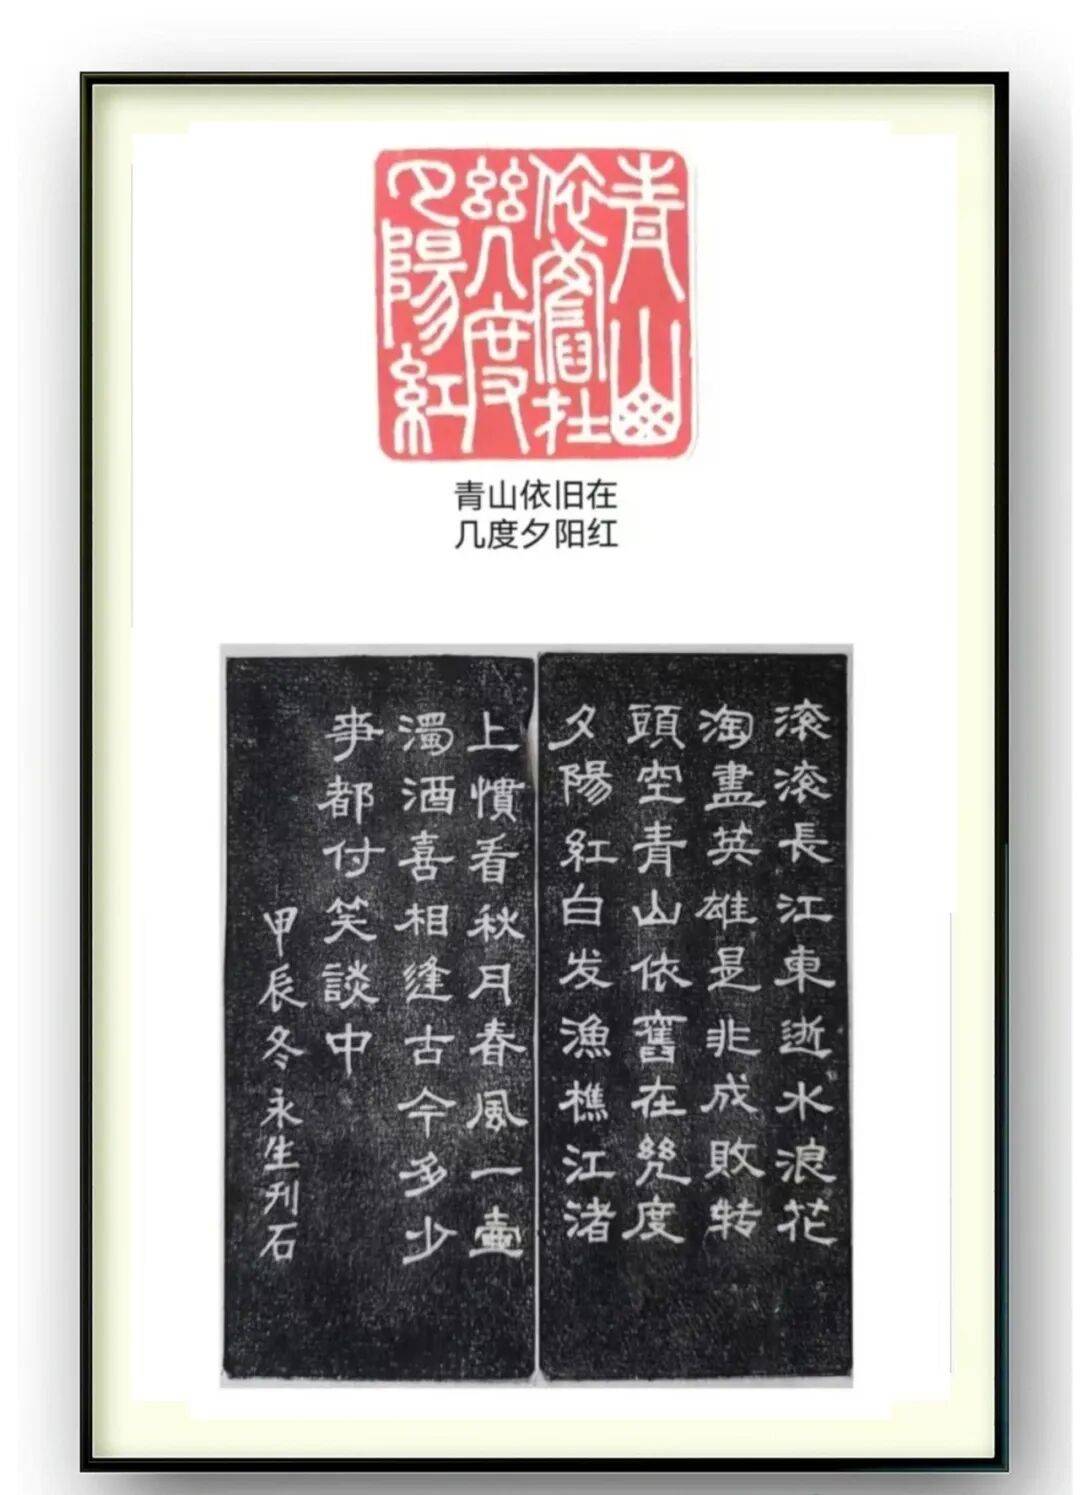 青山
依舊在
幾度
夕陽紅
青山依旧在
几度夕阳红
滚滚長江東逝水浪花
淘盡英雄是非成敗转
頭空青山依舊在幾度
夕陽紅白发漁樵江渚
上慣看秋月春風一壺
濁酒喜相逢古今多少
事都付笑談中
甲辰冬永生刊石